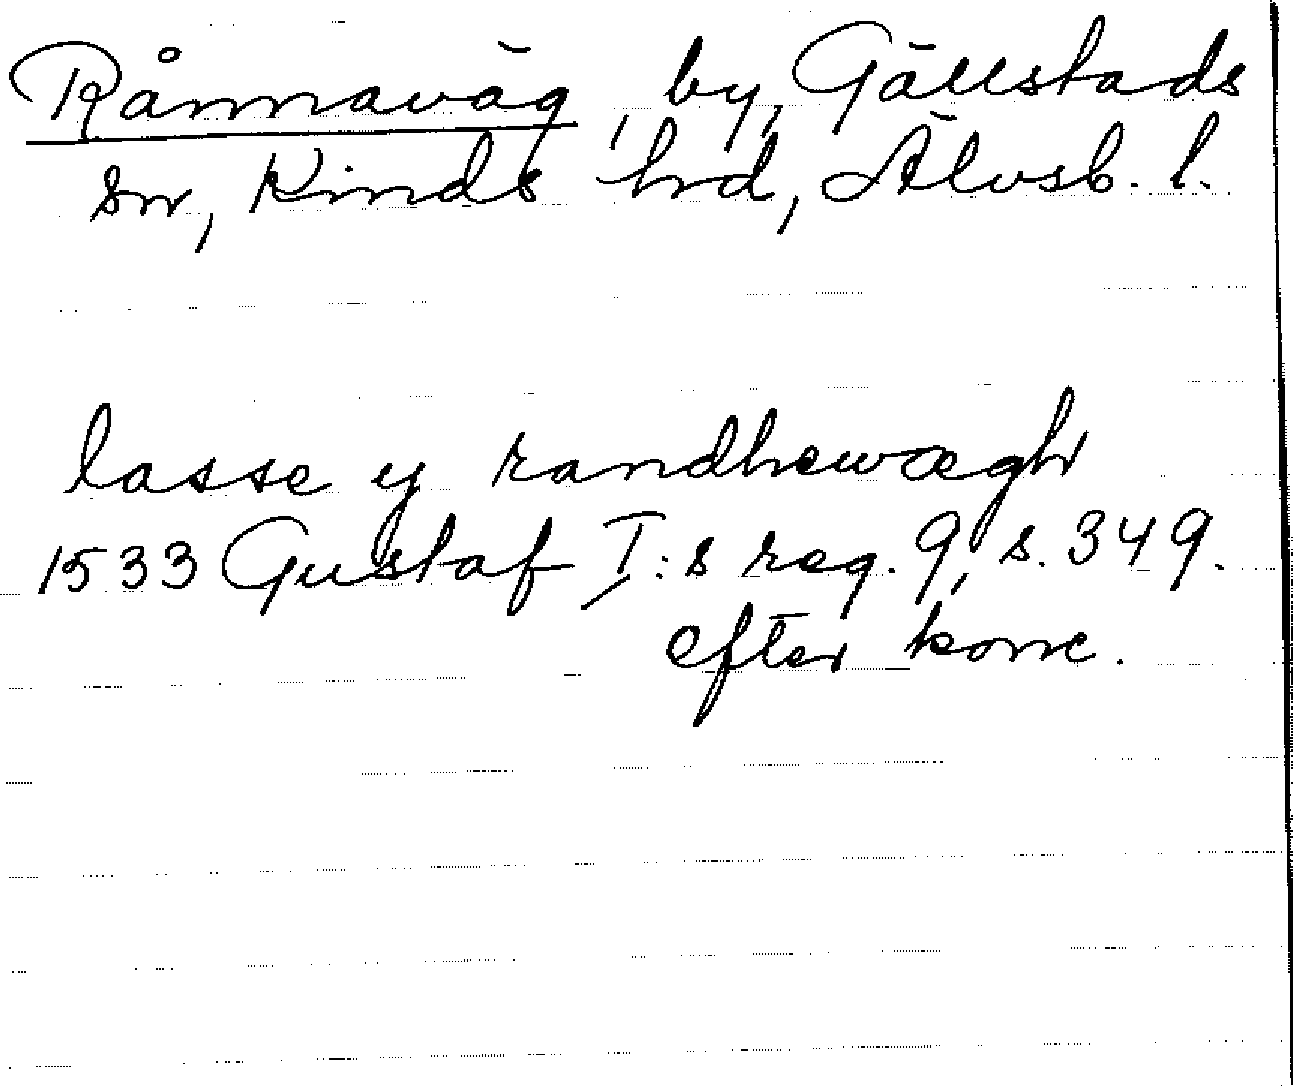 Rånnaväg, by, Gällstads
sn, Kinds hrd, Älvsb. l.
lasse y randhewægh
1533 Gustaf I:s reg. 9, s. 349.
efter konc.